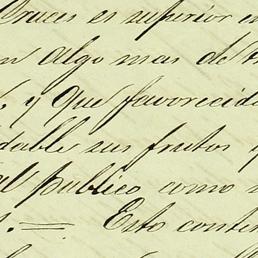 Cruces es superior en
n algo mas de
y que favorecida
dable sus frutos y
publico como
Esto conte